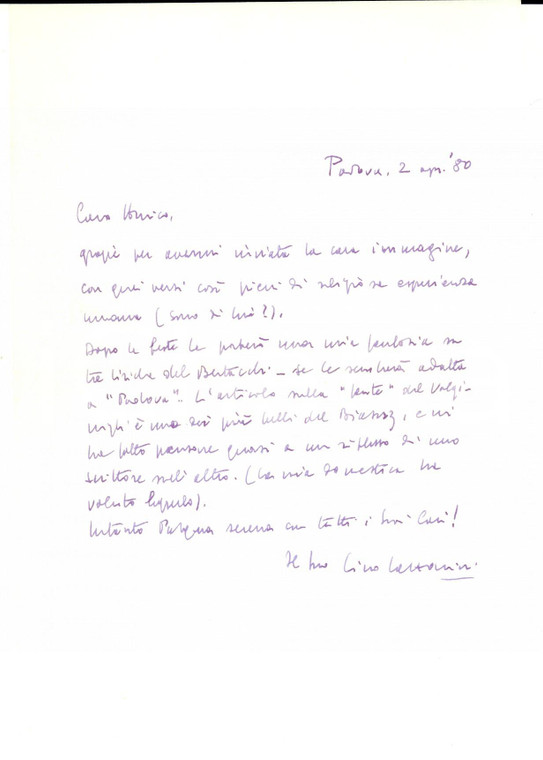 Padova, 2 apr. '80
Caro Amico,
grazie per avermi inviata la cara immagine,
con quei versi così pieni di religiosa esperienza
umana (sono di Lei?).
Dopo le feste le porterò una mia fantasia su
tre liriche del Bertacchi – se le sembrerà adatta
a "Padova". L'articolo sulla "  " del Valgi-
migli è uno dei più belli del Biasuz, e mi
ha fatto pensare quasi a un riflesso di uno
scrittore nell'altro. (La mia domestica ha
voluto leggerlo).
Intanto Pasqua serena con tutti i Suoi Cari!
Il Suo Lino Lazzarini